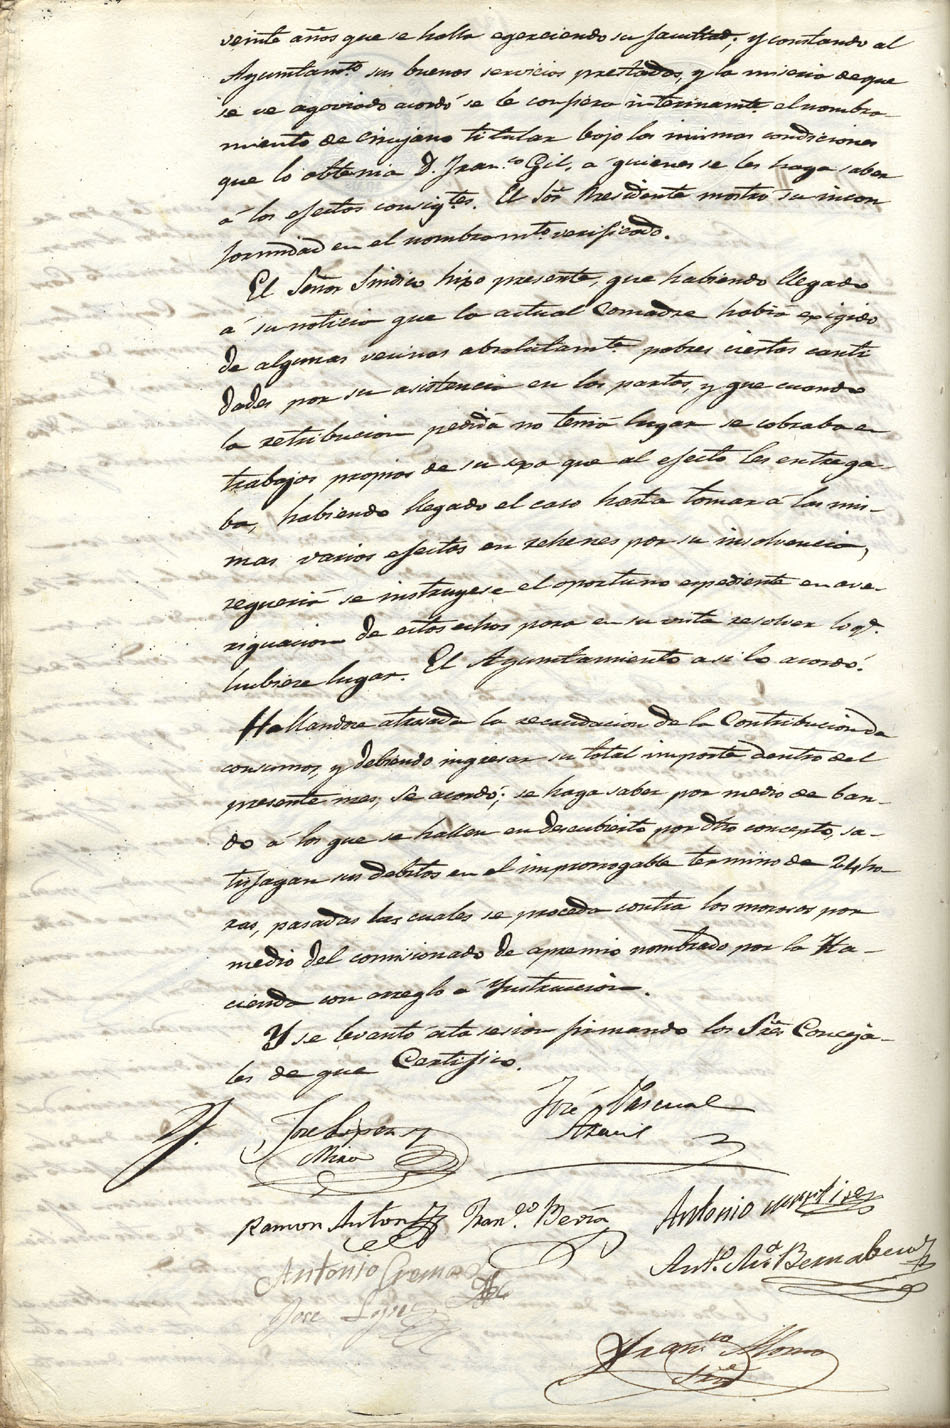 veinte años que se halla egerciendo su facultad; y constando al
Ayuntamto. sus buenos servicios prestados, y la miseria de que
se ve agoviado acordó se le confiera interinamte. el nombra-
miento de cirujano titular bajo las mismas condiciones
que lo obtenia D. Franco. Gil, a quienes se les haga saber
á los efectos consigtes. El Sor. Presidente mostró su incon
formidad en el nombramto. verificado.
El Señor Sindico hizo presente, que habiendo llegado
á su noticia que la actual Comadre habia exigido
de algunas vecinas absolutamte. pobres ciertas canti
dades por su asistencia en los partos, y que cuando
la retribucion pedida no tenia lugar se cobraba en
trabajos propios de su sexo que al efecto les entrega-
ba, habiendo llegado el caso hasta tomar á las mis-
mas varios efectos en rehenes por su insolvencia,
requeria se instruyese el oportuno espediente en ave-
riguacion de estos echos para en su vista resolver lo q.
hubiere lugar. El Ayuntamiento asi lo acordó.
Hallandose atrasada la recaudacion de la Contribucion de
consumos, y debiendo ingresar su total importe dentro del
presente mes, Se acordó; se haga saber por medio de ban-
do á los que se hallen en descubierto por dho concepto, sa-
tisfagan sus debitos en el improrrogable termino de 24 ho-
ras, pasadas las cuales se proceda contra los morosos por
medio del comisionado de apremio nombrado por la Ha-
cienda con arreglo á Ynstruccion.
Y se levantó esta sesion firmando los Sres. Conceja-
les de que Certifico.
José Pascual
Jose Lopez
Mira
Antonio
Ramon Anton Franco. Beria
Anto. Ma. Bernabeu
Antonio Cremades
Jose Lopez
Franco. Alonso
Srio